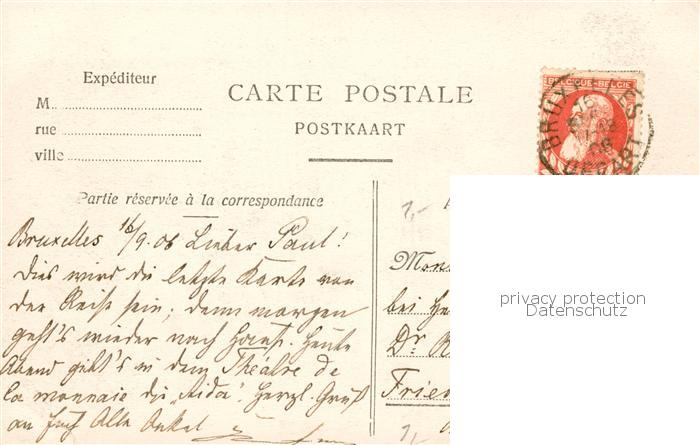 Expéditeur
M
rue
ville
CARTE POSTALE
POSTKAART
BELGIQUE-BELGIE
DEPART
Partie réservée à la correspondance
1,-
Bruxelles 16/9.06 Lieber Paul!
Dies wird die letzte Karte von
der Reise sein; denn morgen
geht's wieder nach Haus. Heute
Abend gibt's in dem Théâtre de
la monnaie die „Aida". Herzl. Gruß
an Euch Alle Onkel
Mons
bei He
Dr R
Frie
1,-
privacy protection
Datenschutz